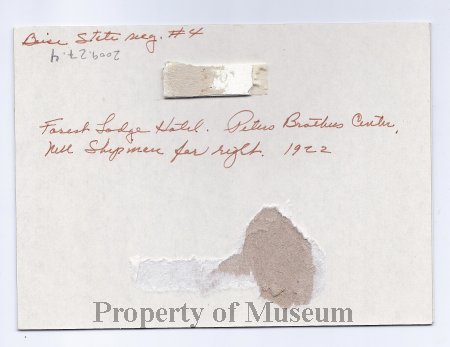 Boise State neg. #4
2009.27.4
Forest Lodge Hotel. Peters Brothers Center,
Nell Shipman far right. 1922
Property of Museum